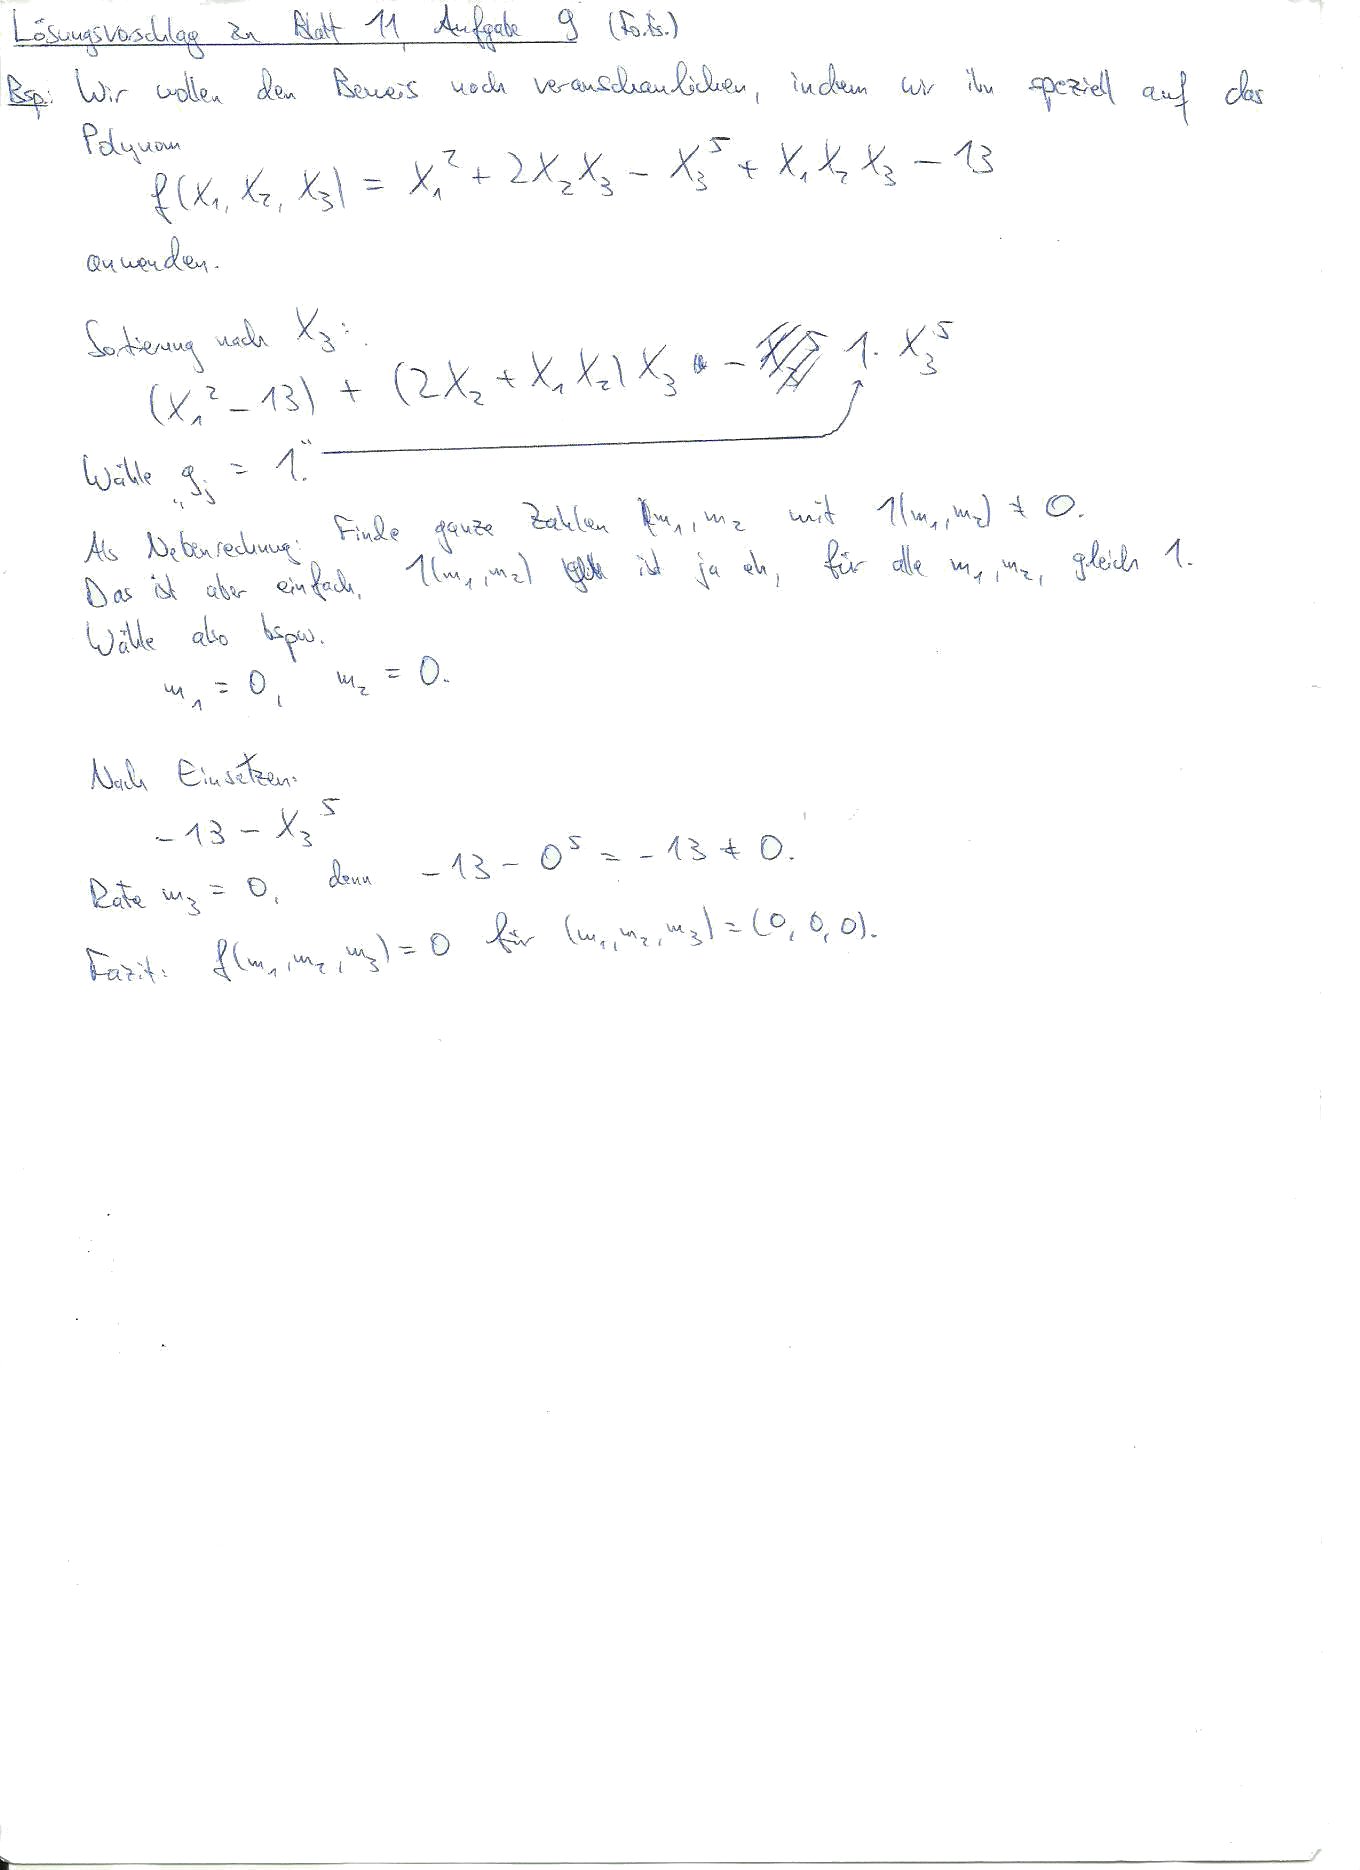 Lösungsvorschlag zu Blatt 11, Aufgabe 9 (Fo.ts.)
Bsp: Wir wollen den Beweis noch veranschaulichen, indem wir ihn speziell auf das
Polynom
f(X₁, X₂, X₃) = X₁² + 2X₂X₃ − X₃⁵ + X₁X₂X₃ − 13
anwenden.
Sortierung nach X₃:
(X₁² − 13) + (2X₂ + X₁X₂) X₃ − 1 · X₃⁵
Wähle „gⱼ = 1.“
Als Nebenrechnung: Finde ganze Zahlen m₁, m₂ mit 1(m₁, m₂) ≠ 0.
Das ist aber einfach, 1(m₁, m₂) ist ja eh, für alle m₁, m₂, gleich 1.
Wähle also bspw.
m₁ = 0, m₂ = 0.
Nach Einsetzen:
−13 − X₃⁵
Rate m₃ = 0, denn −13 − 0⁵ = −13 ≠ 0.
Fazit: f(m₁, m₂, m₃) = 0 für (m₁, m₂, m₃) = (0, 0, 0).